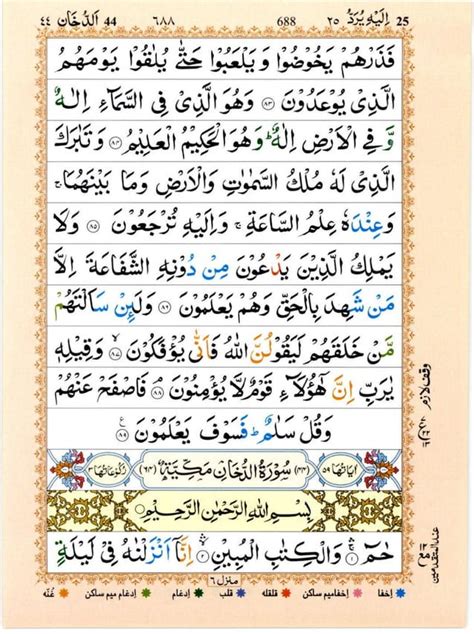 اِلَيْهِ يُرَدُّ ٢٥ 25
688
٦٨٨
اَلدُّخَان ٤٤ 44
فَذَرْهُمْ يَخُوْضُوْا وَيَلْعَبُوْا حَتّٰى يُلٰقُوْا يَوْمَهُمُ
الَّذِىْ يُوْعَدُوْنَ ۝٨٣ وَهُوَ الَّذِىْ فِى السَّمَآءِ اِلٰهٌ
وَّ فِى الْاَرْضِ اِلٰهٌ ؕ وَهُوَ الْحَكِيْمُ الْعَلِيْمُ ۝٨٤ وَتَبٰرَكَ
الَّذِىْ لَهٗ مُلْكُ السَّمٰوٰتِ وَالْاَرْضِ وَمَا بَيْنَهُمَا ۚ
وَعِنْدَهٗ عِلْمُ السَّاعَةِ ۚ وَاِلَيْهِ تُرْجَعُوْنَ ۝٨٥ وَلَا
يَمْلِكُ الَّذِيْنَ يَدْعُوْنَ مِنْ دُوْنِهِ الشَّفَاعَةَ اِلَّا
مَنْ شَهِدَ بِالْحَقِّ وَهُمْ يَعْلَمُوْنَ ۝٨٦ وَلَئِنْ سَاَلْتَهُمْ
مَّنْ خَلَقَهُمْ لَيَقُوْلُنَّ اللّٰهُ فَاَنّٰى يُؤْفَكُوْنَ ۝٨٧ وَقِيْلِهٖ
يٰرَبِّ اِنَّ هٰٓؤُلَآءِ قَوْمٌ لَّا يُؤْمِنُوْنَ ۝٨٨ فَاصْفَحْ عَنْهُمْ
وَقُلْ سَلٰمٌ ؕ فَسَوْفَ يَعْلَمُوْنَ ۝٨٩
وقف لازم
اٰيَاتُهَا ٥٩ (٤٤) سُوْرَةُ الدُّخَانِ مَكِّيَّةٌ (٦٤) رُكُوْعَاتُهَا ٣
بِسْمِ اللّٰهِ الرَّحْمٰنِ الرَّحِيْمِ
حٰمٓ ۝١ وَالْكِتٰبِ الْمُبِيْنِ ۝٢ اِنَّاۤ اَنْزَلْنٰهُ فِىْ لَيْلَةٍ
منزل ٦
اخفا اخفامیم ساکن قلقله قلب ادغام ادغام میم ساکن غُنّه